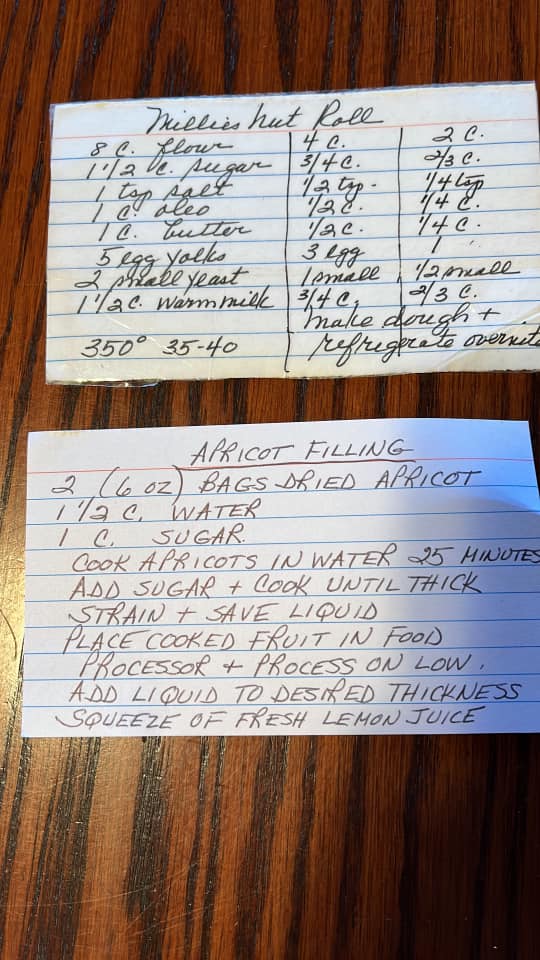 Millies nut Roll
8 C. flour | 4 C. | 2 C.
1 1/2 C. sugar | 3/4 C. | 2/3 C.
1 tsp salt | 1/2 tsp. | 1/4 tsp
1 C. oleo | 1/2 C. | 1/4 C.
1 C. butter | 1/2 C. | 1/4 C.
5 egg yolks | 3 egg | 1
2 small yeast | 1 small | 1/2 small
1 1/2 C. warm milk | 3/4 C. | 2/3 C.
make dough +
350° 35-40 | refrigerate overnite
APRICOT FILLING
2 (6 OZ) BAGS DRIED APRICOT
1 1/2 C. WATER
1 C. SUGAR.
COOK APRICOTS IN WATER 25 MINUTES
ADD SUGAR + COOK UNTIL THICK
STRAIN + SAVE LIQUID
PLACE COOKED FRUIT IN FOOD
PROCESSOR + PROCESS ON LOW.
ADD LIQUID TO DESIRED THICKNESS
SQUEEZE OF FRESH LEMON JUICE